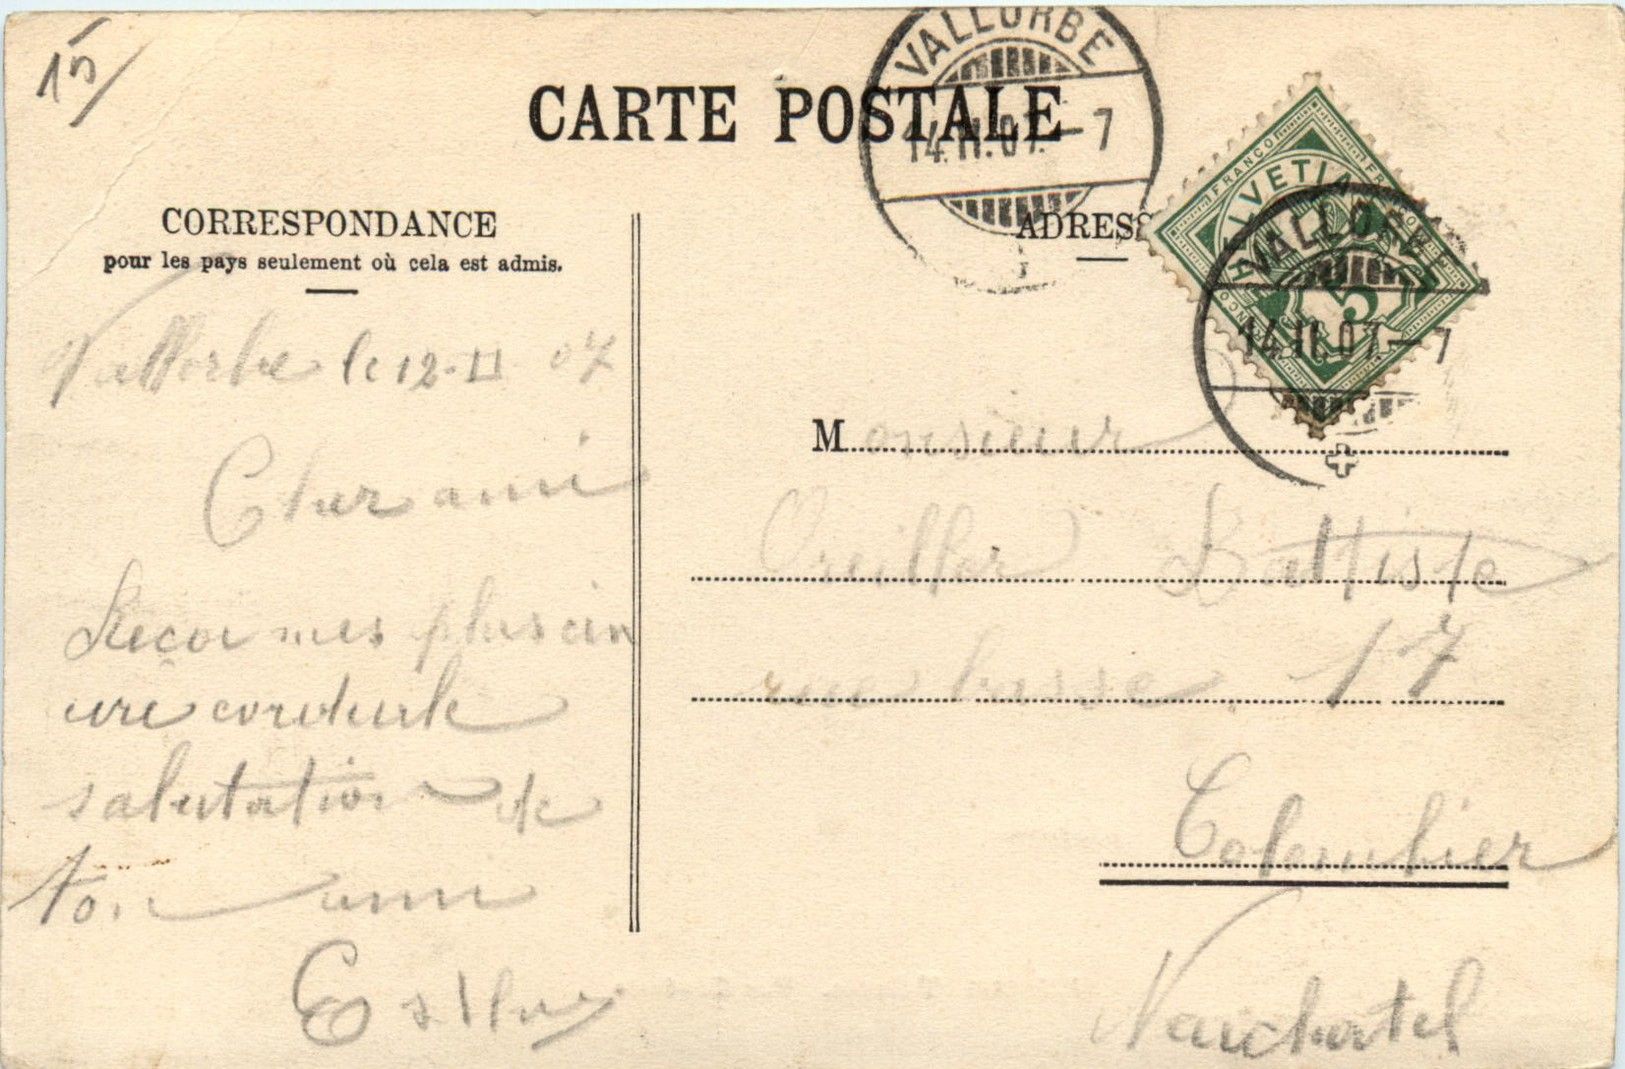 15
CARTE POSTALE
VALLORBE
14.II.07.–7
CORRESPONDANCE
pour les pays seulement où cela est admis.
ADRESS
FRANCO
HELVETIA
FRANCO
5
VALLORBE
14.II.07–7
Vallorbe le 12-II 07
Cher ami
Reçoi mes plus cin
cordiale
salutation de
ton ami
Monsieur
Oreiller Battiste
rue basse 17
Colombier
Neuchatel